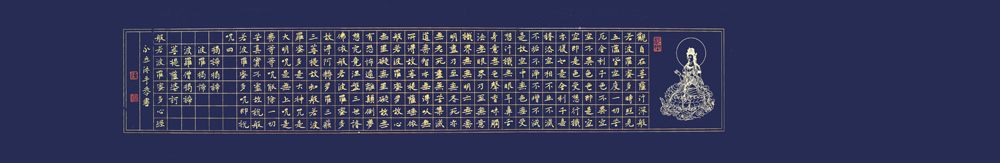 觀自在菩薩行深般
若波羅蜜多時照見
五蘊皆空度一切苦
厄舍利子色不異空
空不異色色即是空
空即是色受想行識
亦復如是舍利子是
諸法空相不生不滅
不垢不淨不增不減
是故空中無色無受
想行識無眼耳鼻舌
身意無色聲香味觸
法無眼界乃至無意
識界無無明亦無無
明盡乃至無老死亦
無老死盡無苦集滅
道無智亦無得以無
所得故菩提薩埵依
般若波羅蜜多故心
無罣礙無罣礙故無
有恐怖遠離顛倒夢
想究竟涅盤三世諸
佛依般若波羅蜜多
故得阿耨多羅三藐
三菩提故知般若波
羅蜜多是大神咒是
大明咒是無上咒是
無等等咒能除一切
苦真實不虛故說般
若波羅蜜多咒即說
咒曰
揭諦揭諦
波羅揭諦
波羅僧揭諦
菩提薩婆訶
般若波羅蜜多心經